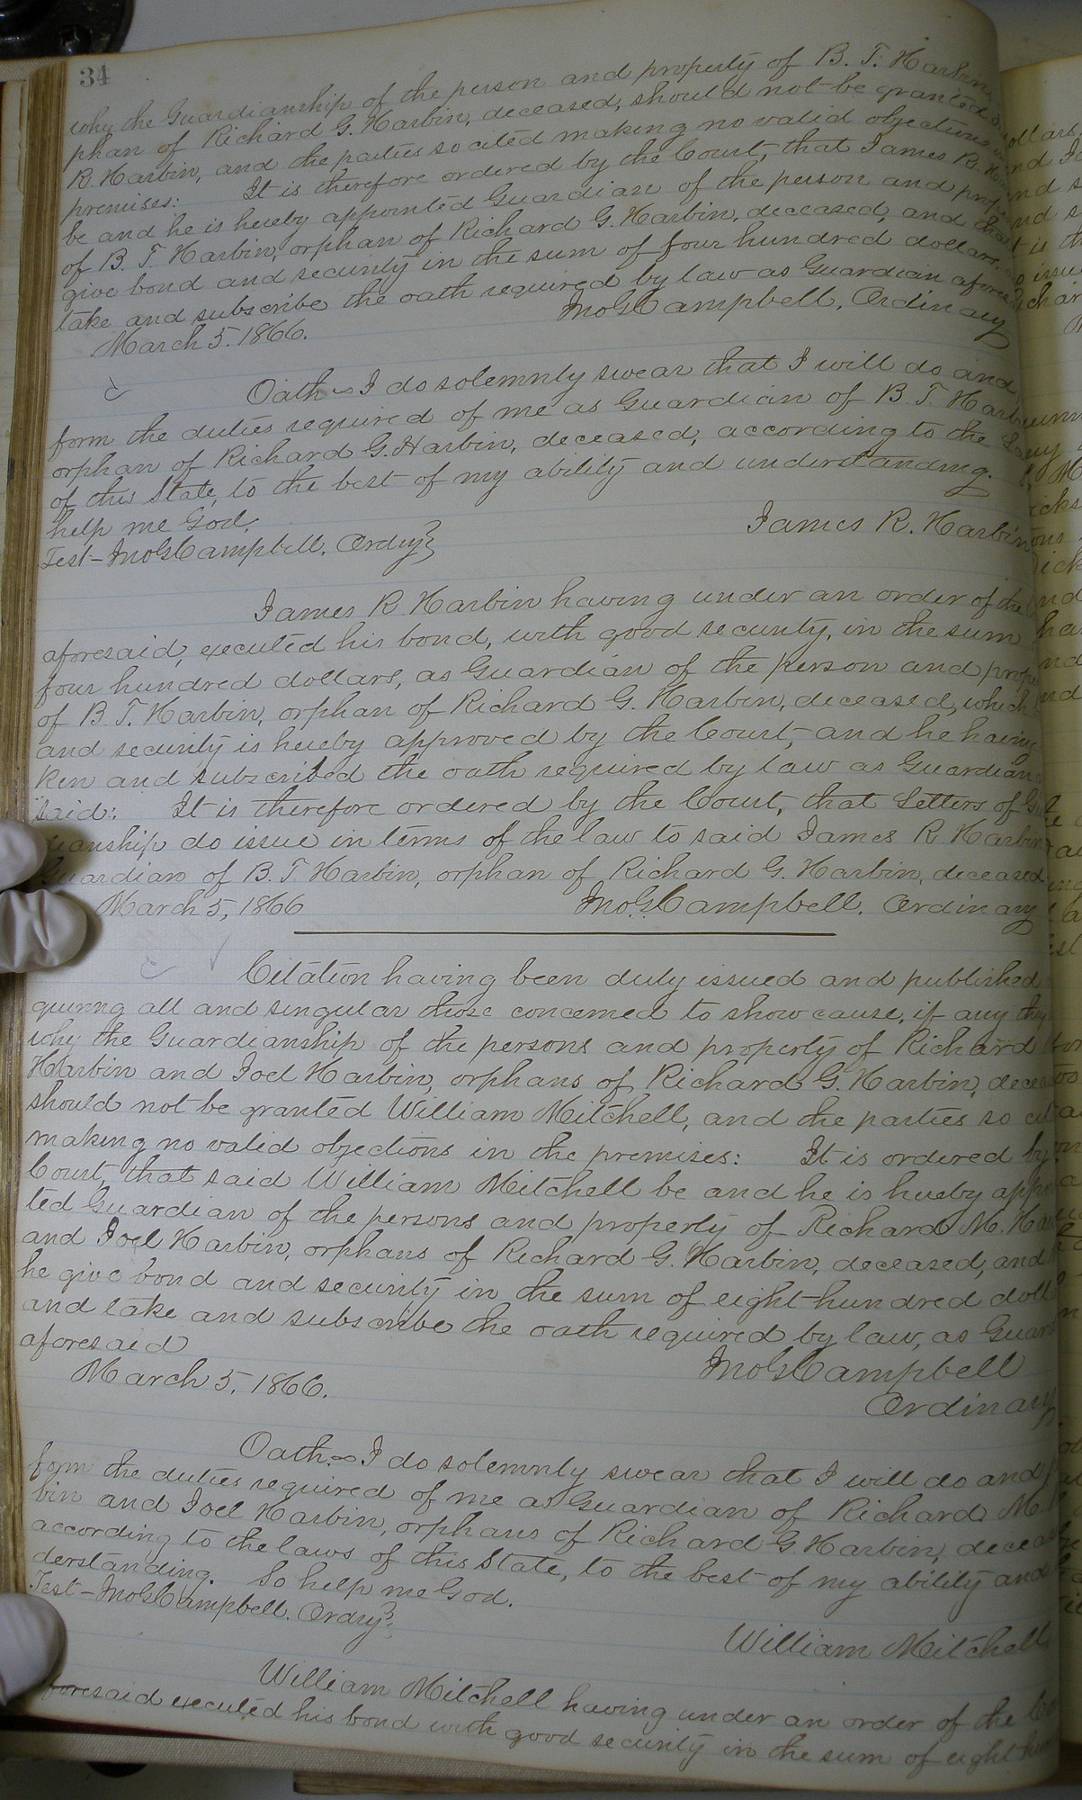 34
why the Guardianship of the person and property of B. T. Harbin,
phan of Richard G. Harbin, deceased, should not be granted
R. Harbin, and the parties so cited making no valid objections
premises: It is therefore ordered by the Court, that James R. Har
be and he is hereby appointed Guardian of the person and prop
of B. T. Harbin, orphan of Richard G. Harbin, deceased, and that
give bond and security in the sum of four hundred dollars.
take and subscribe the oath required by law as Guardian afores
March 5. 1866. Jno G Campbell, Ordinary
Oath ~ I do solemnly swear that I will do and
form the duties required of me as Guardian of B T. Harb
orphan of Richard G. Harbin, deceased, according to the
of this State, to the best of my ability and understanding.
help me God.
James R. Harbin
Test - Jno G Campbell. Ordry
James R Harbin having under an order of the
aforesaid, executed his bond, with good security, in the sum
four hundred dollars, as Guardian of the person and prope
of B T. Harbin, orphan of Richard G. Harbin, deceased, which
and security is hereby approved by the Court, and he having
ken and subscribed the oath required by law as Guardian
said: It is therefore ordered by the Court, that Letters of G
ianship do issue in terms of the law to said James R Harbin
uardian of B. T. Harbin, orphan of Richard G. Harbin, deceased
March 5, 1866 Jno G. Campbell. Ordinary
Citation having been duly issued and published
quiring all and singular those concerned to show cause, if any they
why the Guardianship of the persons and property of Richard
Harbin and Joel Harbin, orphans of Richard G. Harbin, decea
should not be granted William Mitchell, and the parties so cit
making no valid objections in the premises: It is ordered by
Court, that said William Mitchell be and he is hereby appoi
ted Guardian of the persons and property of Richard M. Har
and Joel Harbin, orphans of Richard G. Harbin, deceased, and
he give bond and security in the sum of eight hundred doll
and take and subscribe the oath required by law, as Guard
aforesaid
Jno G Campbell
March 5. 1866.
Ordinary
Oath. ~ I do solemnly swear that I will do and p
form the duties required of me as Guardian of Richard M.
bin and Joel Harbin, orphans of Richard G Harbin, deceas
according to the laws of this State, to the best of my ability and
derstanding. So help me God.
Test - Jno G Campbell. Ordry
William Mitchell
William Mitchell having under an order of the
foresaid executed his bond with good security in the sum of eight hun